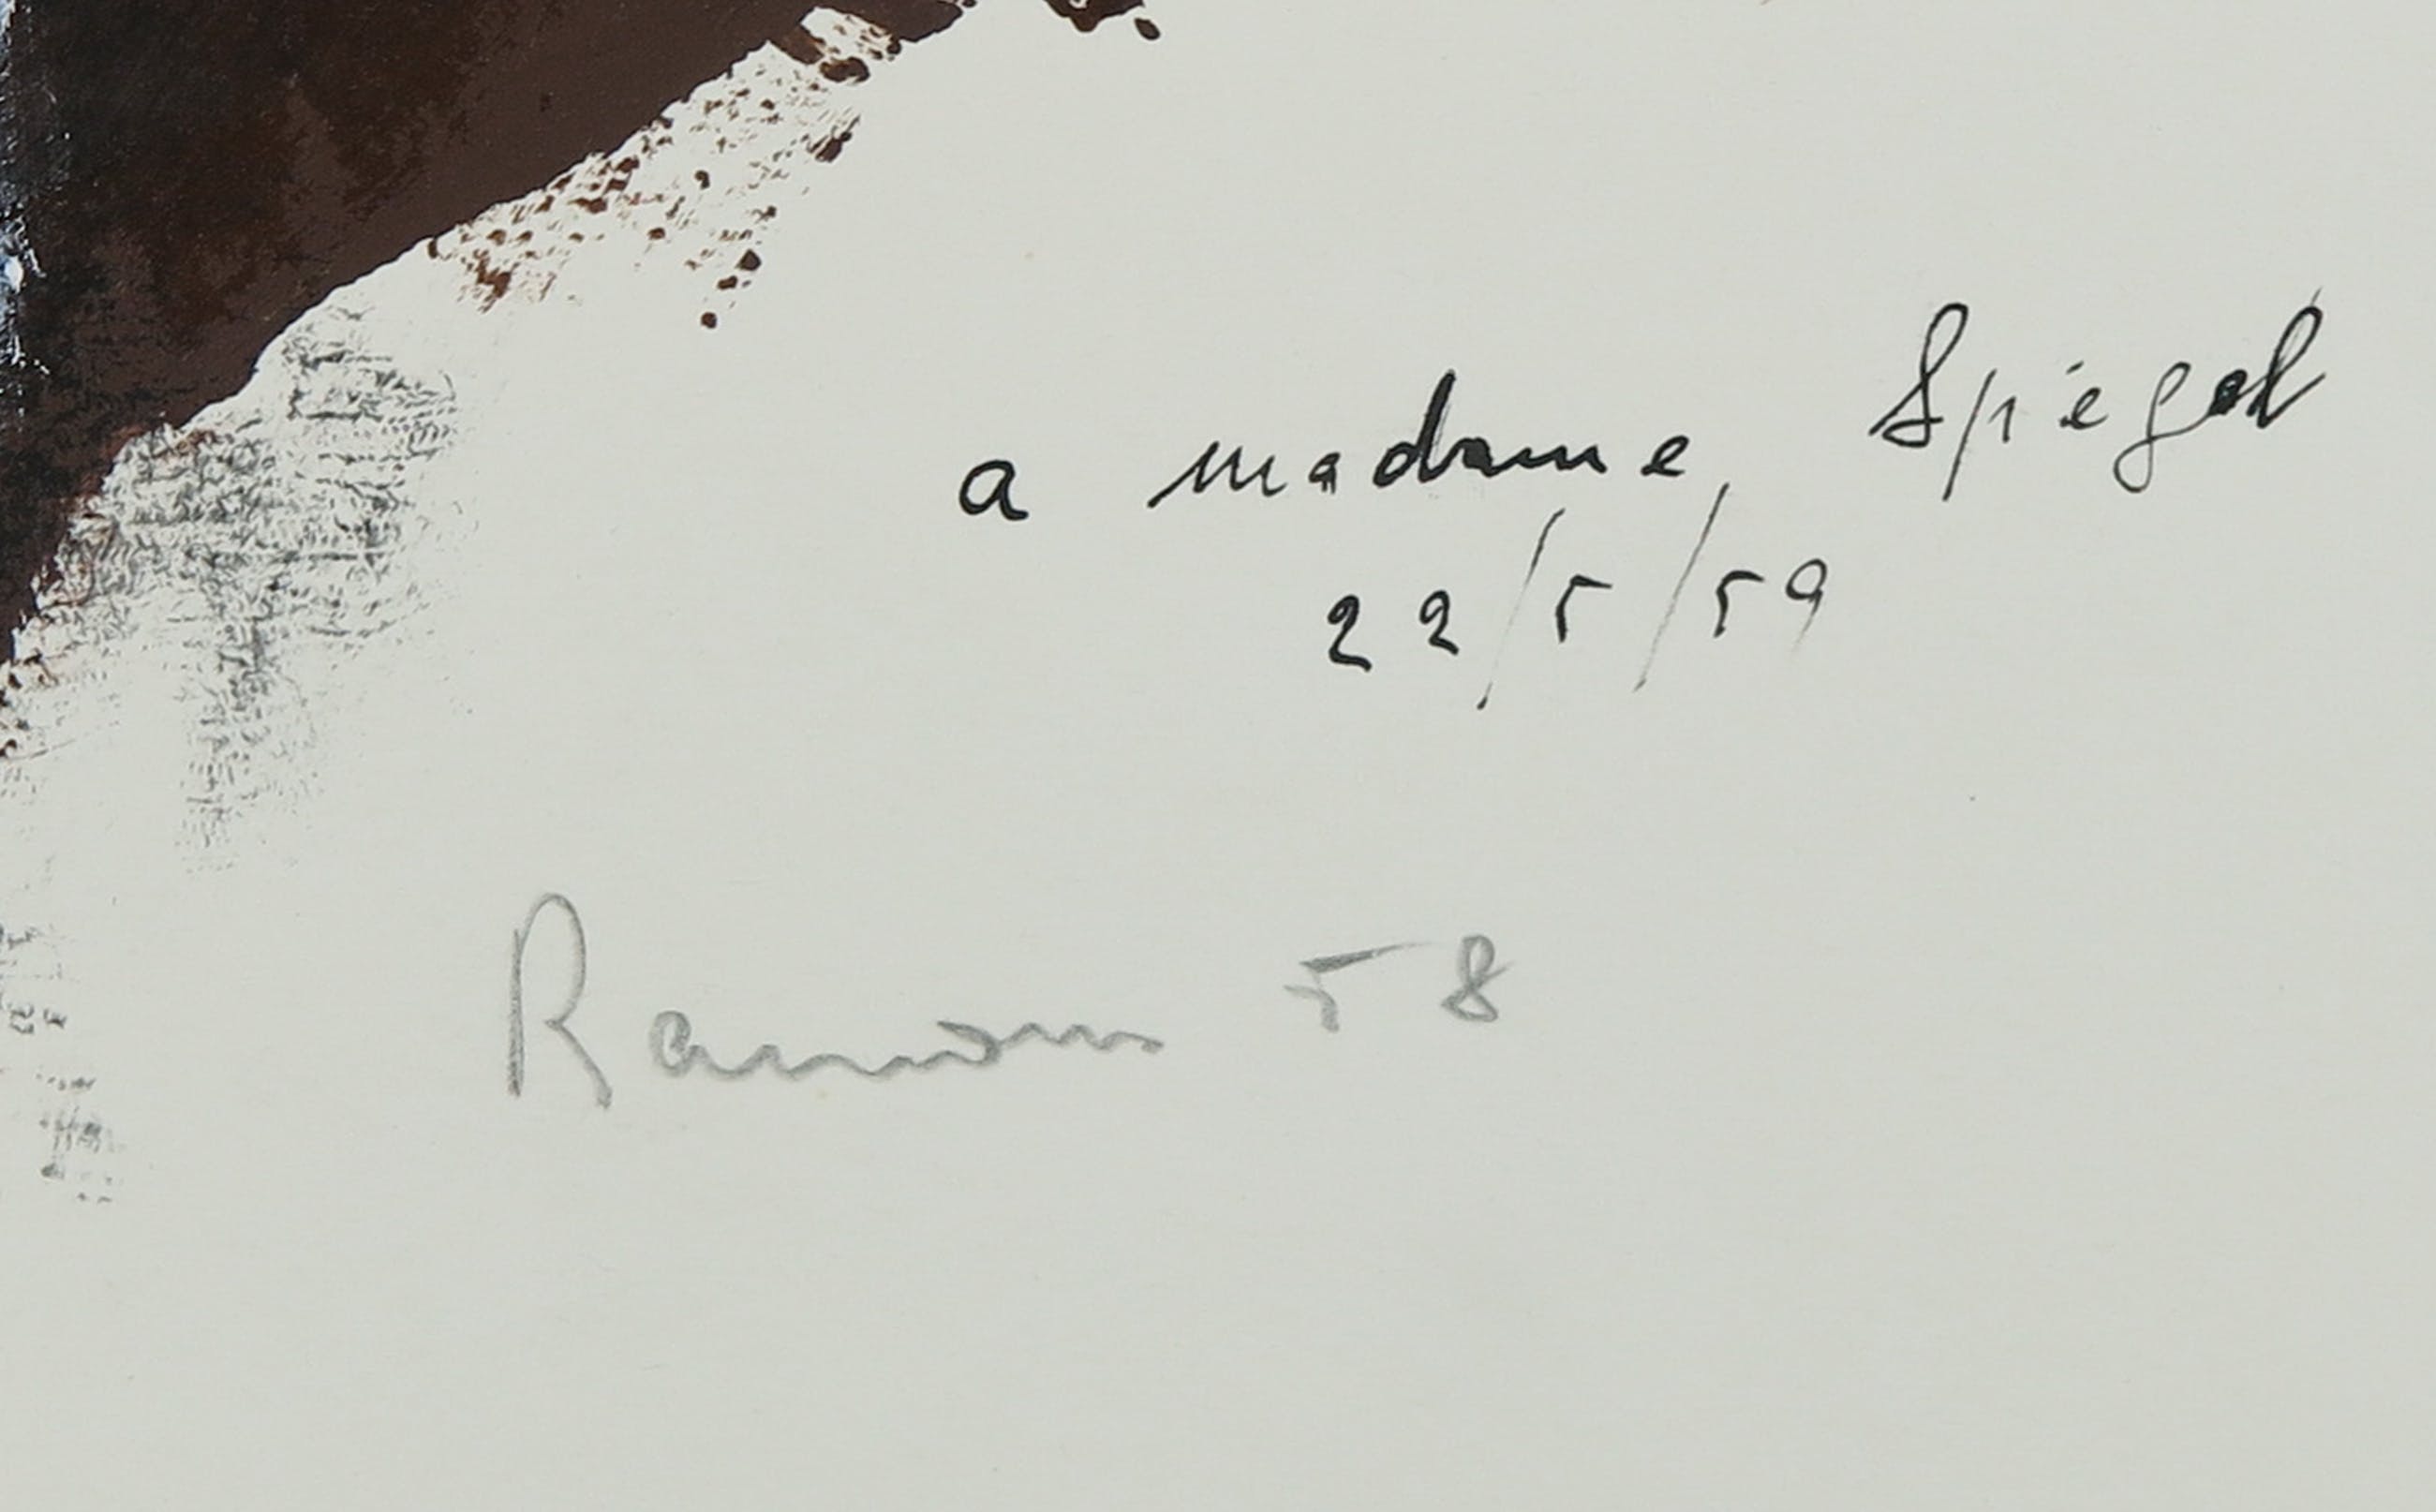 a madame Spiegel
22/5/59
58